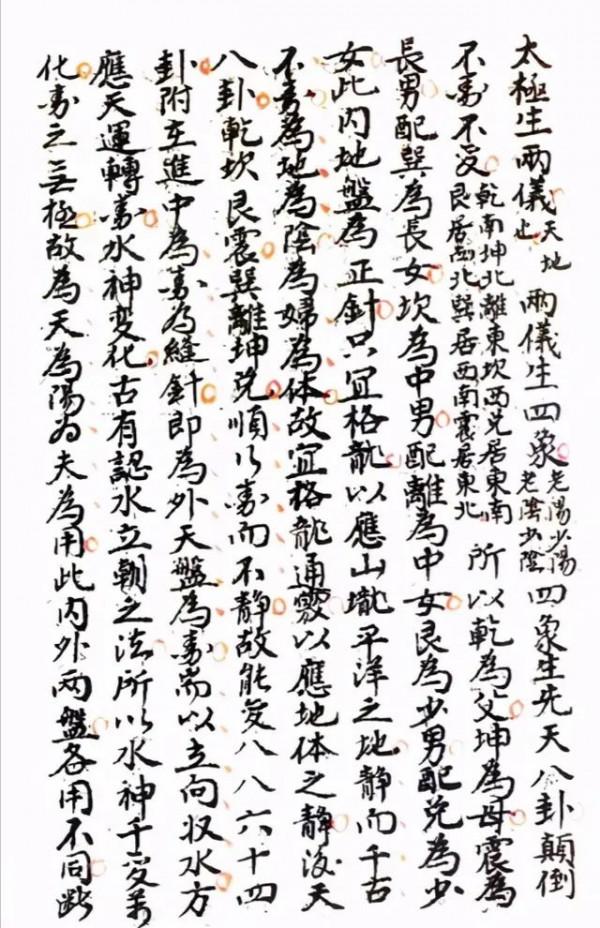 太極生兩儀天地也兩儀生四象老陽少陽老陰少陰四象生先天八卦顛倒
不動不变乾南坤北離東坎西兌居東南艮居西北巽居西南震居東北所以乾為父坤為母震為
長男配巽為長女坎為中男配離為中女艮為少男配兌為少
女此内地盤為正針只宜格龍以應山壠平洋之地静而千古
不動為地為陰為婦為体故宜格龍通竅以應地体之静後天
八卦乾坎艮震巽離坤兌順以動而不静故能变八八六十四
卦附在進中為動為縫針即為外天盤為動耑以立向収水方
應天運轉動水神变化古有認水立朝之法所以水神千变萬
化動之無極故為天為陽為夫為用此内外兩盤各用不同断